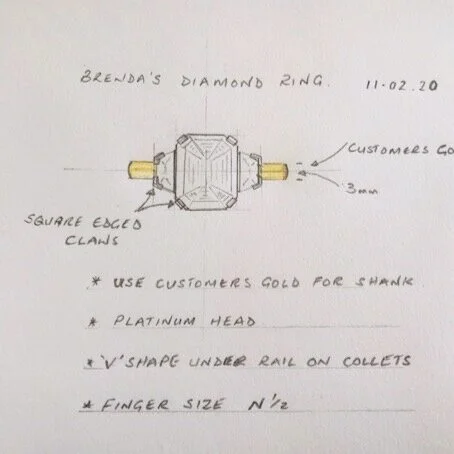 BRENDA'S DIAMOND RING. 11-02.20
CUSTOMERS GO
3mm
SQUARE EDGED
CLAWS
* USE CUSTOMERS GOLD FOR SHANK
* PLATINUM HEAD
* 'V' SHAPE UNDER RAIL ON COLLETS
* FINGER SIZE N½